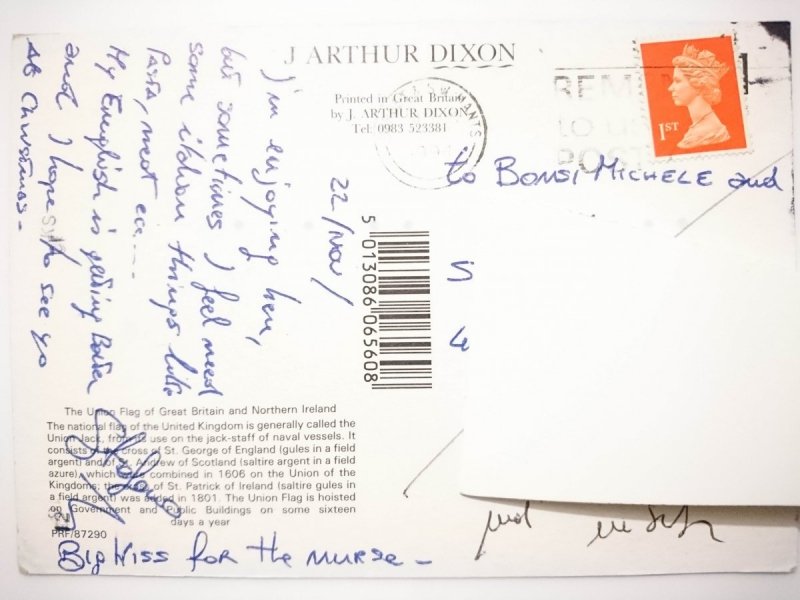 J ARTHUR DIXON
Printed in Great Britain
by J. ARTHUR DIXON
Tel: 0983 523381
1ST
to BONSI MICHELE and
22/Nov/
I'm enjoying here,
but sometimes I feel need
some italian things like
Pasta, meat ecc....
My English is getting Better
and I hope to see yo
at Christmas -
5 013086 065608
The Union Flag of Great Britain and Northern Ireland
The national flag of the United Kingdom is generally called the
Union Jack, from its use on the jack-staff of naval vessels. It
consists of the cross of St. George of England (gules in a field
argent) and of St. Andrew of Scotland (saltire argent in a field
azure), which were combined in 1606 on the Union of the
Kingdoms; the cross of St. Patrick of Ireland (saltire gules in
a field argent) was added in 1801. The Union Flag is hoisted
on Government and Public Buildings on some sixteen
days a year
PRF/87290
Big Kiss for the nurse -